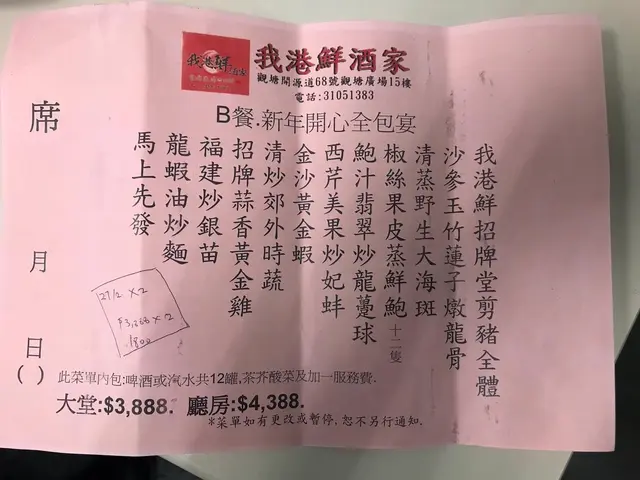 我港鮮酒家
觀塘開源道68號觀塘廣場15樓
電話:31051383
B餐.新年開心全包宴
我港鮮招牌堂剪豬全體
沙參玉竹蓮子燉龍骨
清蒸野生大海斑
椒絲果皮蒸鮮鮑十二隻
鮑汁翡翠炒龍躉球
西芹美果炒妃蚌
金沙黃金蝦
清炒郊外時蔬
招牌蒜香黃金雞
福建炒銀苗
龍蝦油炒麵
馬上先發
席
月
日
( )
27/2 x 2
$3,268 x 2
1800
此菜單內包:啤酒或汽水共12罐,茶芥酸菜及加一服務費.
大堂:$3,888. 廳房:$4,388.
*菜單如有更改或暫停,恕不另行通知.